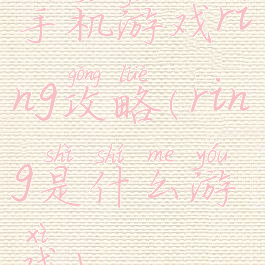 手机游戏ri
gōng lüè
ng攻略(rin
shì shí me yóu
g是什么游
xì
戏)